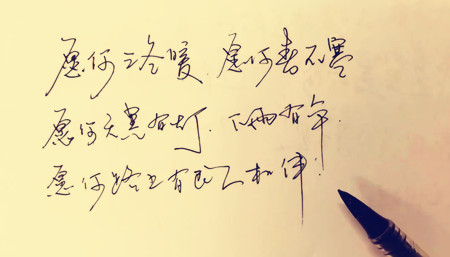 愿你三冬暖.愿你春不寒
愿你天黑有灯.下雨有伞.
愿你路上有良人相伴.